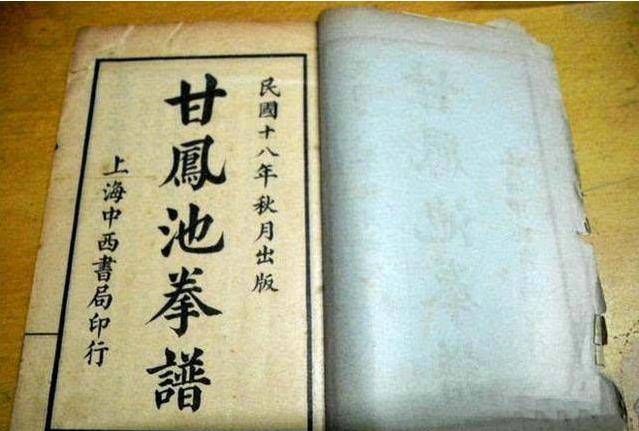 民國十八年秋月出版
甘鳳池拳譜
上海中西書局印行